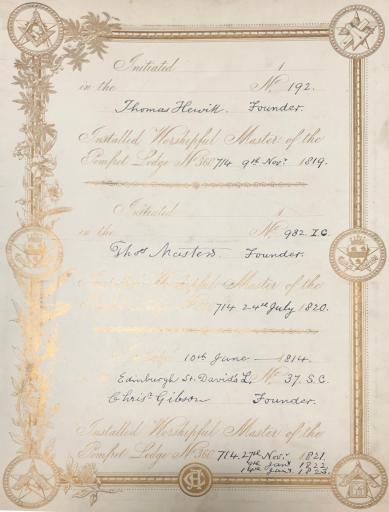 Initiated 1
in the No 192.
Thomas Hewitt. Founder.
Installed Worshipful Master of the
Pomfret Lodge No 360 714 9th Novr 1819.
Initiated 1
in the No 982 I.C.
Thos Masters. Founder.
Installed Worshipful Master of the
714 24th July 1820.
Initiated 10th June — 1814.
Edinburgh St. Davids L, No 37. S.C.
Chrisr Gibson Founder.
Installed Worshipful Master of the
Pomfret Lodge No 360 714. 27th Novr 1821.
9th Jany 1822.
14th Jany 1823.